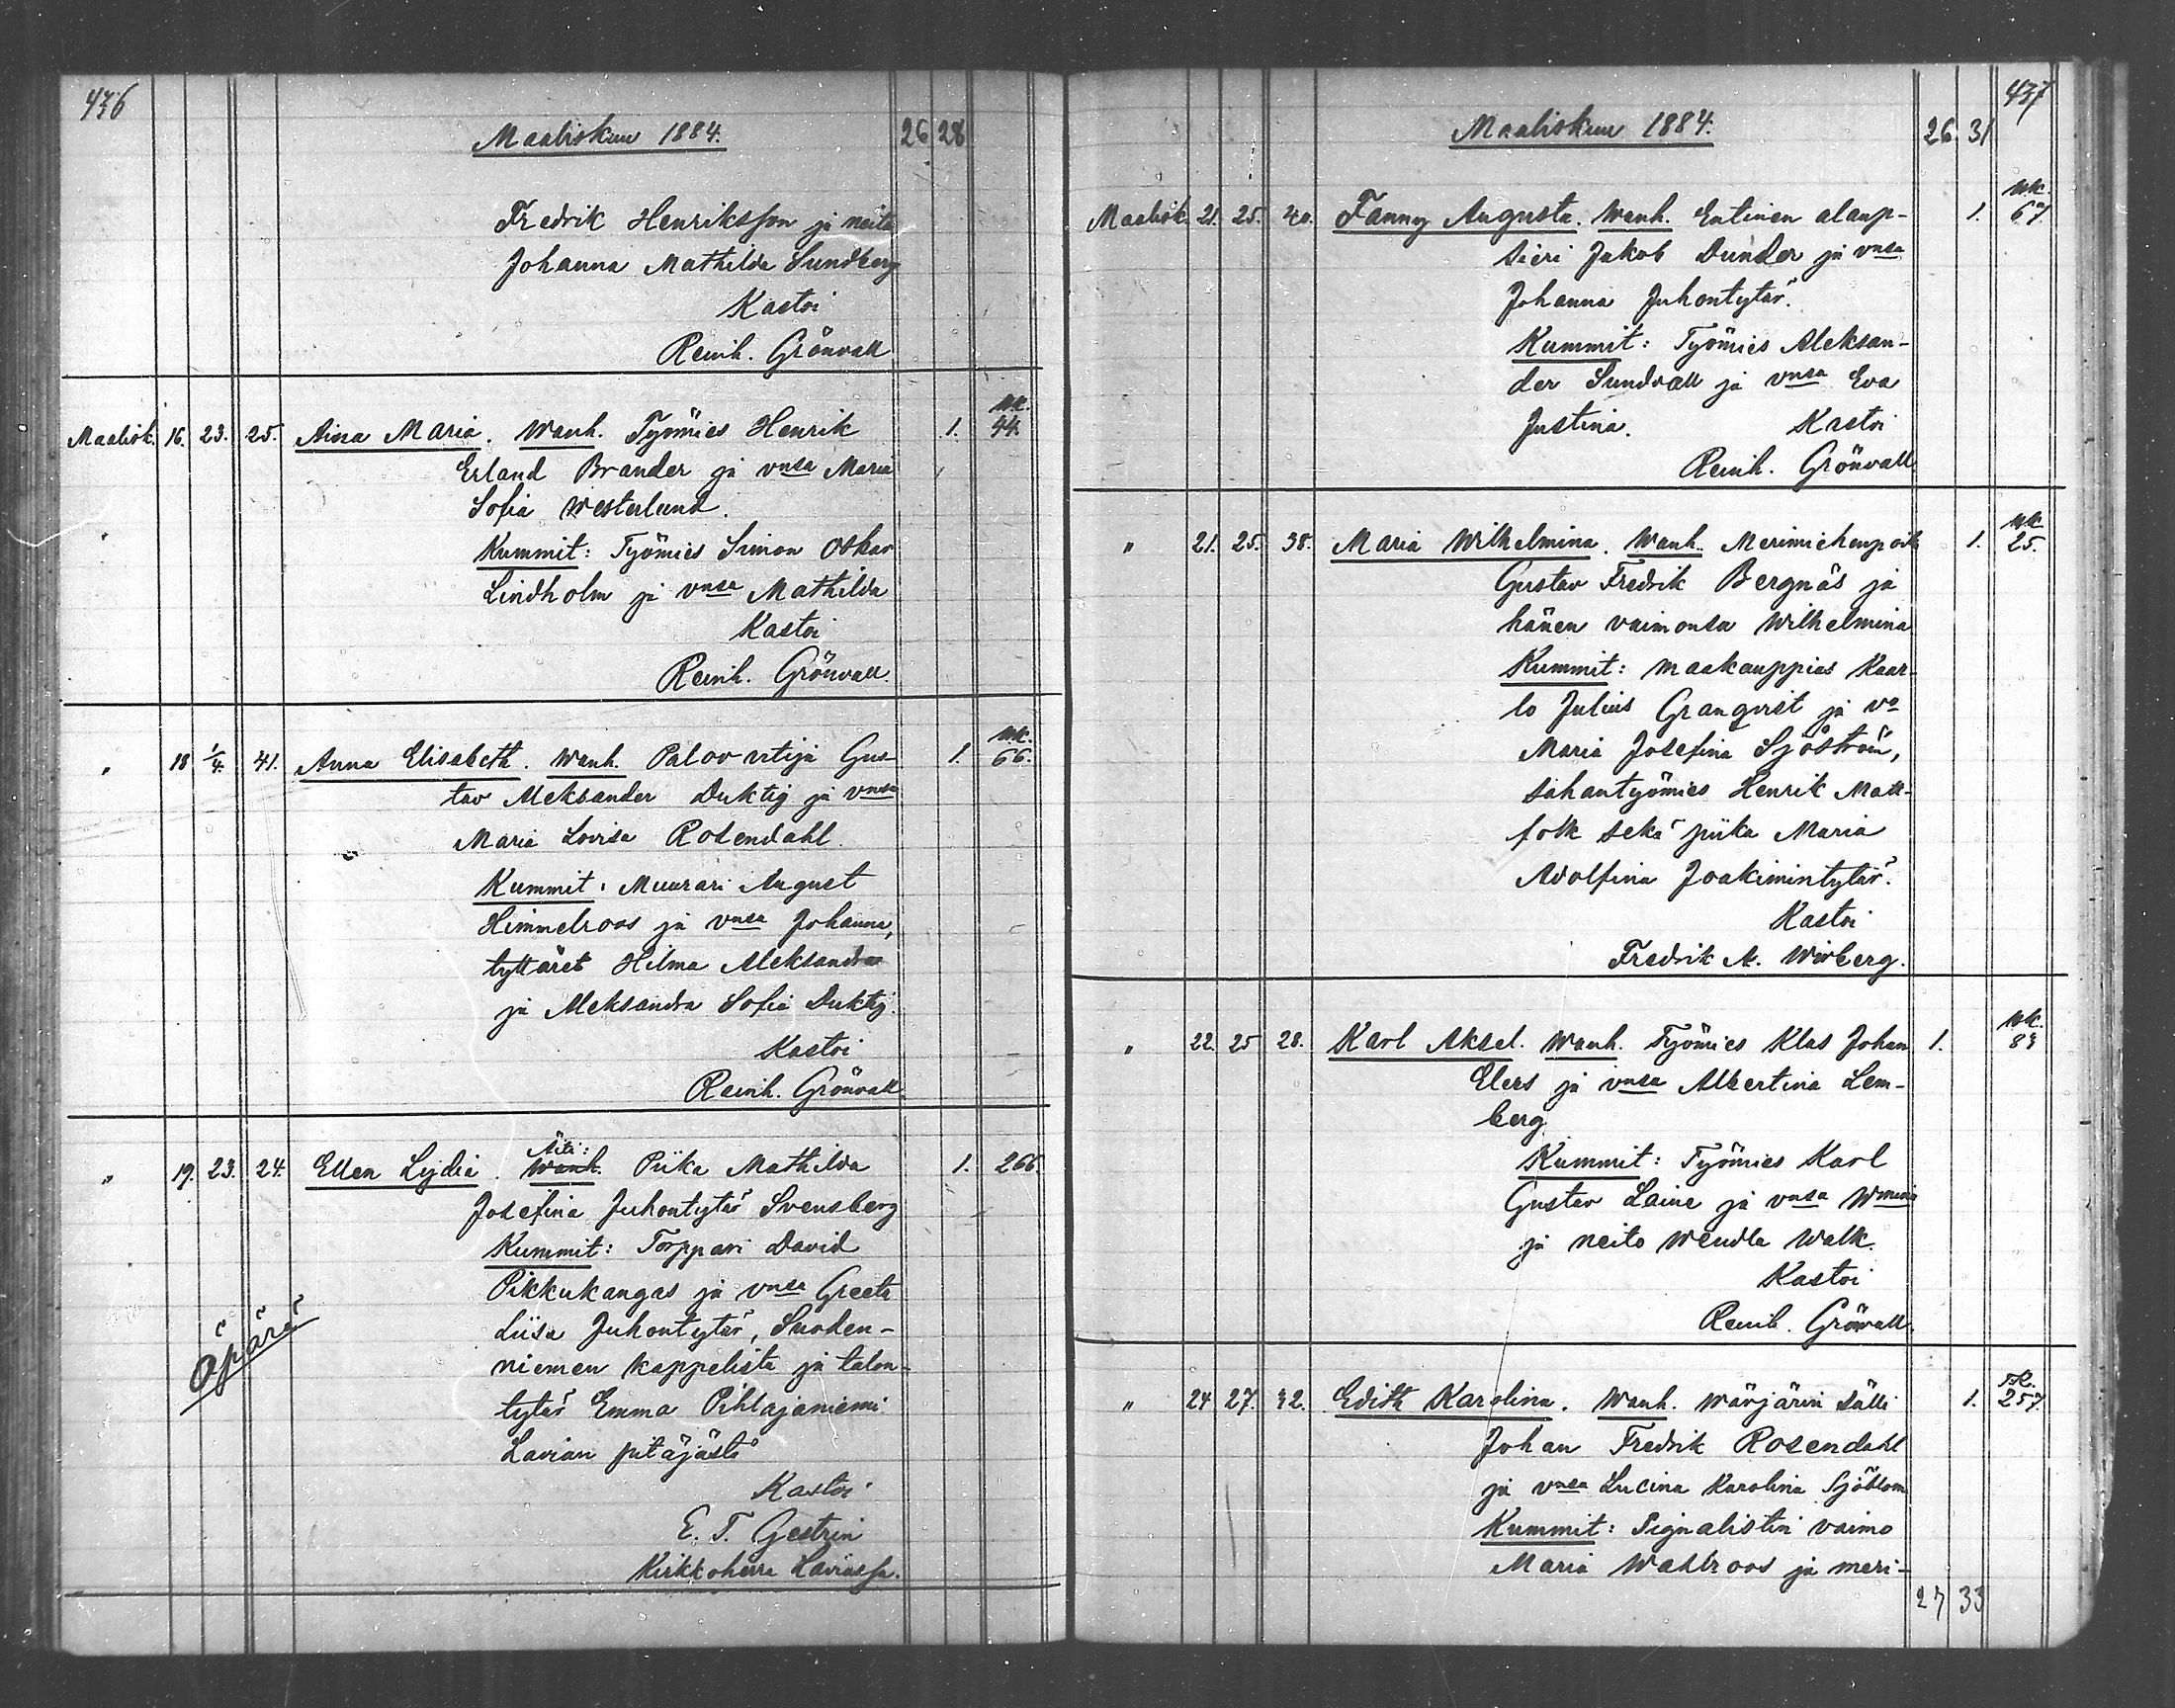 436
Maaliskuu 1884.
26 28
Fredrik Henriksson ja neito
Johanna Mathilda Sundberg
Kastoi
Reinh. Grönvall
Maalisk. 16. 23. 25. Aina Maria. Wanh. Työmies Henrik 1. Wk. 44.
Erland Brander ja vnsa Maria
Sofia Westerlund.
Kummit: Työmies Simon Oskar
Lindholm ja vnsa Mathilda
Kastoi
Reinh. Grönvall.
" 18 1/4. 41. Anna Elisabeth. Wanh. Palovartija Gus- 1. Wk. 66.
tav Aleksander Duktig ja vnsa
Maria Lovisa Rosendahl.
Kummit: Muurari August
Himmelroos ja vnsa Johanna,
tyttäret Hilma Aleksandra
ja Aleksandra Sofia Duktig.
Kastoi
Reinh. Grönvall.
" 19. 23. 24. Ellen Lydia. Wanh. Äiti: Piika Mathilda 1. 266.
Josefina Juhontytär Svensberg
Kummit: Torppari David
Pikkukangas ja vnsa Greeta
Liisa Juhontytär, Suoden-
niemen kappelista ja talon-
tytär Emma Pihlajaniemi
Lavian pitäjästä
Äpärä
Kastoi
E. T. Gestrin
Kirkkoherra Laviassa.
437
Maaliskuu 1884.
26 31
Maalisk. 21. 25. 40. Fanny Augusta. Wanh. Entinen alaup- 1. Wk. 67.
sieri Jakob Dunder ja vnsa
Johanna Juhontytär.
Kummit: Työmies Aleksan-
der Sundvall ja vnsa Eva
Justina. Kastoi
Reinh. Grönvall
" 21. 25. 38. Maria Wilhelmina. Wanh. Merimiehenpoik 1. Wk 25.
Gustav Fredrik Bergnäs ja
hänen vaimonsa Wilhelmina
Kummit: Maakauppias Kaar-
lo Julius Granqvist ja vo
Maria Josefina Sjöström,
sahantyömies Henrik Matt-
folk sekä piika Maria
Adolfina Joakimintytär.
Kastoi
Fredrik A. Wiberg.
" 22. 25 28. Karl Aksel. Wanh. Työmies Klas Johan 1. Wk. 83
Elers ja vnsa Albertina Lem-
berg
Kummit: Työmies Karl
Gustav Laine ja vnsa Wmina
ja neito Wendla Walk.
Kastoi
Reinh. Grönvall.
" 24 27. 32. Edith Karolina. Wanh. Wärjärin sälli 1. TK. 257.
Johan Fredrik Rosendahl
ja vnsa Lucina Karolina Sjöblom
Kummit: Signalistin vaimo
Maria Wahlroos ja meri-
27 33